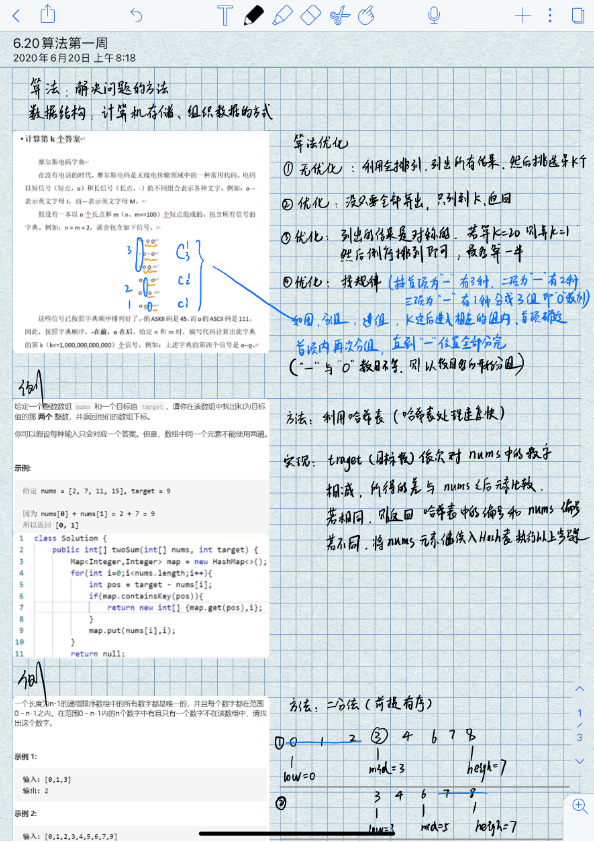 6.20算法第一周
2020年6月20日 上午8:18
算法：解决问题的方法
数据结构：计算机存储、组织数据的方式
• 计算第 k 个答案
摩尔斯电码字典
在没有电话的时代，摩尔斯电码是无线电传输领域中的一种常用代码。电码
以短信号（短点，o）和长信号（长点，-）的不同组合表示各种文字。例如：o—
表示英文字母 J，而—表示英文字母 M。
假设有一本以 n 个长点和 m（n、m<=100）个短点组成的、包含所有信号的
字典。例如：n = m = 2，就会包含如下信号。
3
2
1
这些信号已按照字典顺序排列好了。-的 ASKII 码是 45，而 o 的 ASCII 码是 111。
因此，按照字典顺序，-在前，o 在后。给定 n 和 m 时，编写代码计算出此字典
的第 k（k<=1,000,000,000,000）个信号。例如：上述字典的第四个信号是 o--o。
算法优化
① 无优化：利用全排列，列出所有结果，然后挑选第K个
② 优化：没必要全部算出，只列到K,返回
③ 优化：列出的结果是对称的，若算K=20 则算K=1
然后倒序排列即可，最多算一半
④ 优化：找规律
和图，分组，进组，K之后进入相应的组内，首项确定
首项内再次分组，直到"-"位置全部分完
("-"与"0"数目不等，则以数目
例
给定一个整数数组 nums 和一个目标值 target，请你在该数组中找出和为目标
值的那 两个 整数，并返回他们的数组下标。
你可以假设每种输入只会对应一个答案。但是，数组中同一个元素不能使用两遍。
示例:
给定 nums = [2, 7, 11, 15], target = 9
因为 nums[0] + nums[1] = 2 + 7 = 9
所以返回 [0, 1]
1 class Solution {
2 public int[] twoSum(int[] nums, int target) {
3 Map<Integer,Integer> map = new HashMap<>();
4 for(int i=0;i<nums.length;i++){
5 int pos = target - nums[i];
6 if(map.containsKey(pos)){
7 return new int[] {map.get(pos),i};
8 }
9 map.put(nums[i],i);
10 }
11 return null;
方法：利用哈希表（哈希表处理速度快）
实现：traget (目标数) 依次对 nums 中的数字
相减，所得的差与 nums 之后元素比较.
若相同，则返回 哈希表中的编号和 nums 编号
若不同，将nums 元素 存入Hash表 执行以上步骤
例
一个长度为n-1的递增排序数组中的所有数字都是唯一的，并且每个数字都在范围
0～n-1之内。在范围0～n-1内的n个数字中有且只有一个数字不在该数组中，请找
出这个数字。
示例 1:
输入: [0,1,3]
输出: 2
示例 2:
输入: [0,1,2,3,4,5,6,7,9]
方法：二分法（前提有序）
① 0 1 2 ③ 4 6 7 8
low=0 mid=3 heigh=7
② 3 4 6 7 8
low=3 mid=5 heigh=7
1
/
3